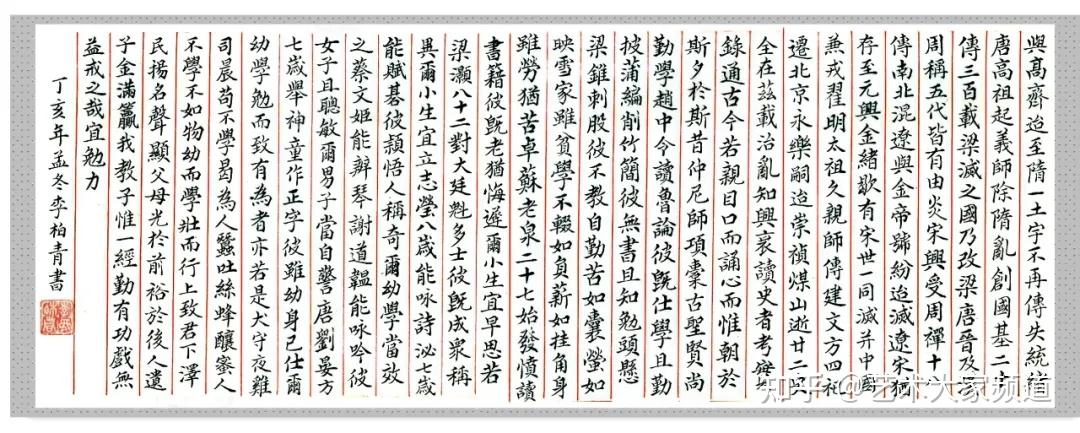 與高齊迨至隋一土宇不再傳失統緒
唐高祖起義師除隋亂創國基二十
傳三百載梁滅之國乃改梁唐晉及漢
周稱五代皆有由炎宋興受周禪十
傳南北混遼與金帝號紛迨滅遼宋猶
存至元興金緒歇有宋世一同滅并中國
兼戎翟明太祖久親師傳建文方四祀
遷北京永樂嗣迨崇禎煤山逝廿二史
全在茲載治亂知興衰讀史者考實
錄通古今若親目口而誦心而惟朝於
斯夕於斯昔仲尼師項橐古聖賢尚
勤學趙中令讀魯論彼既仕學且勤
披蒲編削竹簡彼無書且知勉頭懸
梁錐刺股彼不教自勤苦如囊螢如
映雪家雖貧學不輟如負薪如挂角身
雖勞猶苦卓蘇老泉二十七始發憤讀
書籍彼既老猶悔遲爾小生宜早思若
梁灝八十二對大廷魁多士彼既成衆稱
異爾小生宜立志瑩八歲能咏詩泌七歲
能賦碁彼穎悟人稱奇爾幼學當效
之蔡文姬能辨琴謝道韞能咏吟彼
女子且聰敏爾男子當自警唐劉晏方
七歲舉神童作正字彼雖幼身己仕爾
幼學勉而致有為者亦若是犬守夜雞
司晨苟不學曷為人蠶吐絲蜂釀蜜人
不學不如物幼而學壯而行上致君下澤
民揚名聲顯父母光於前裕於後人遺
子金滿籯我教子惟一經勤有功戲無
益戒之哉宜勉力
丁亥年孟冬李柏青書
知乎 @艺术大家频道